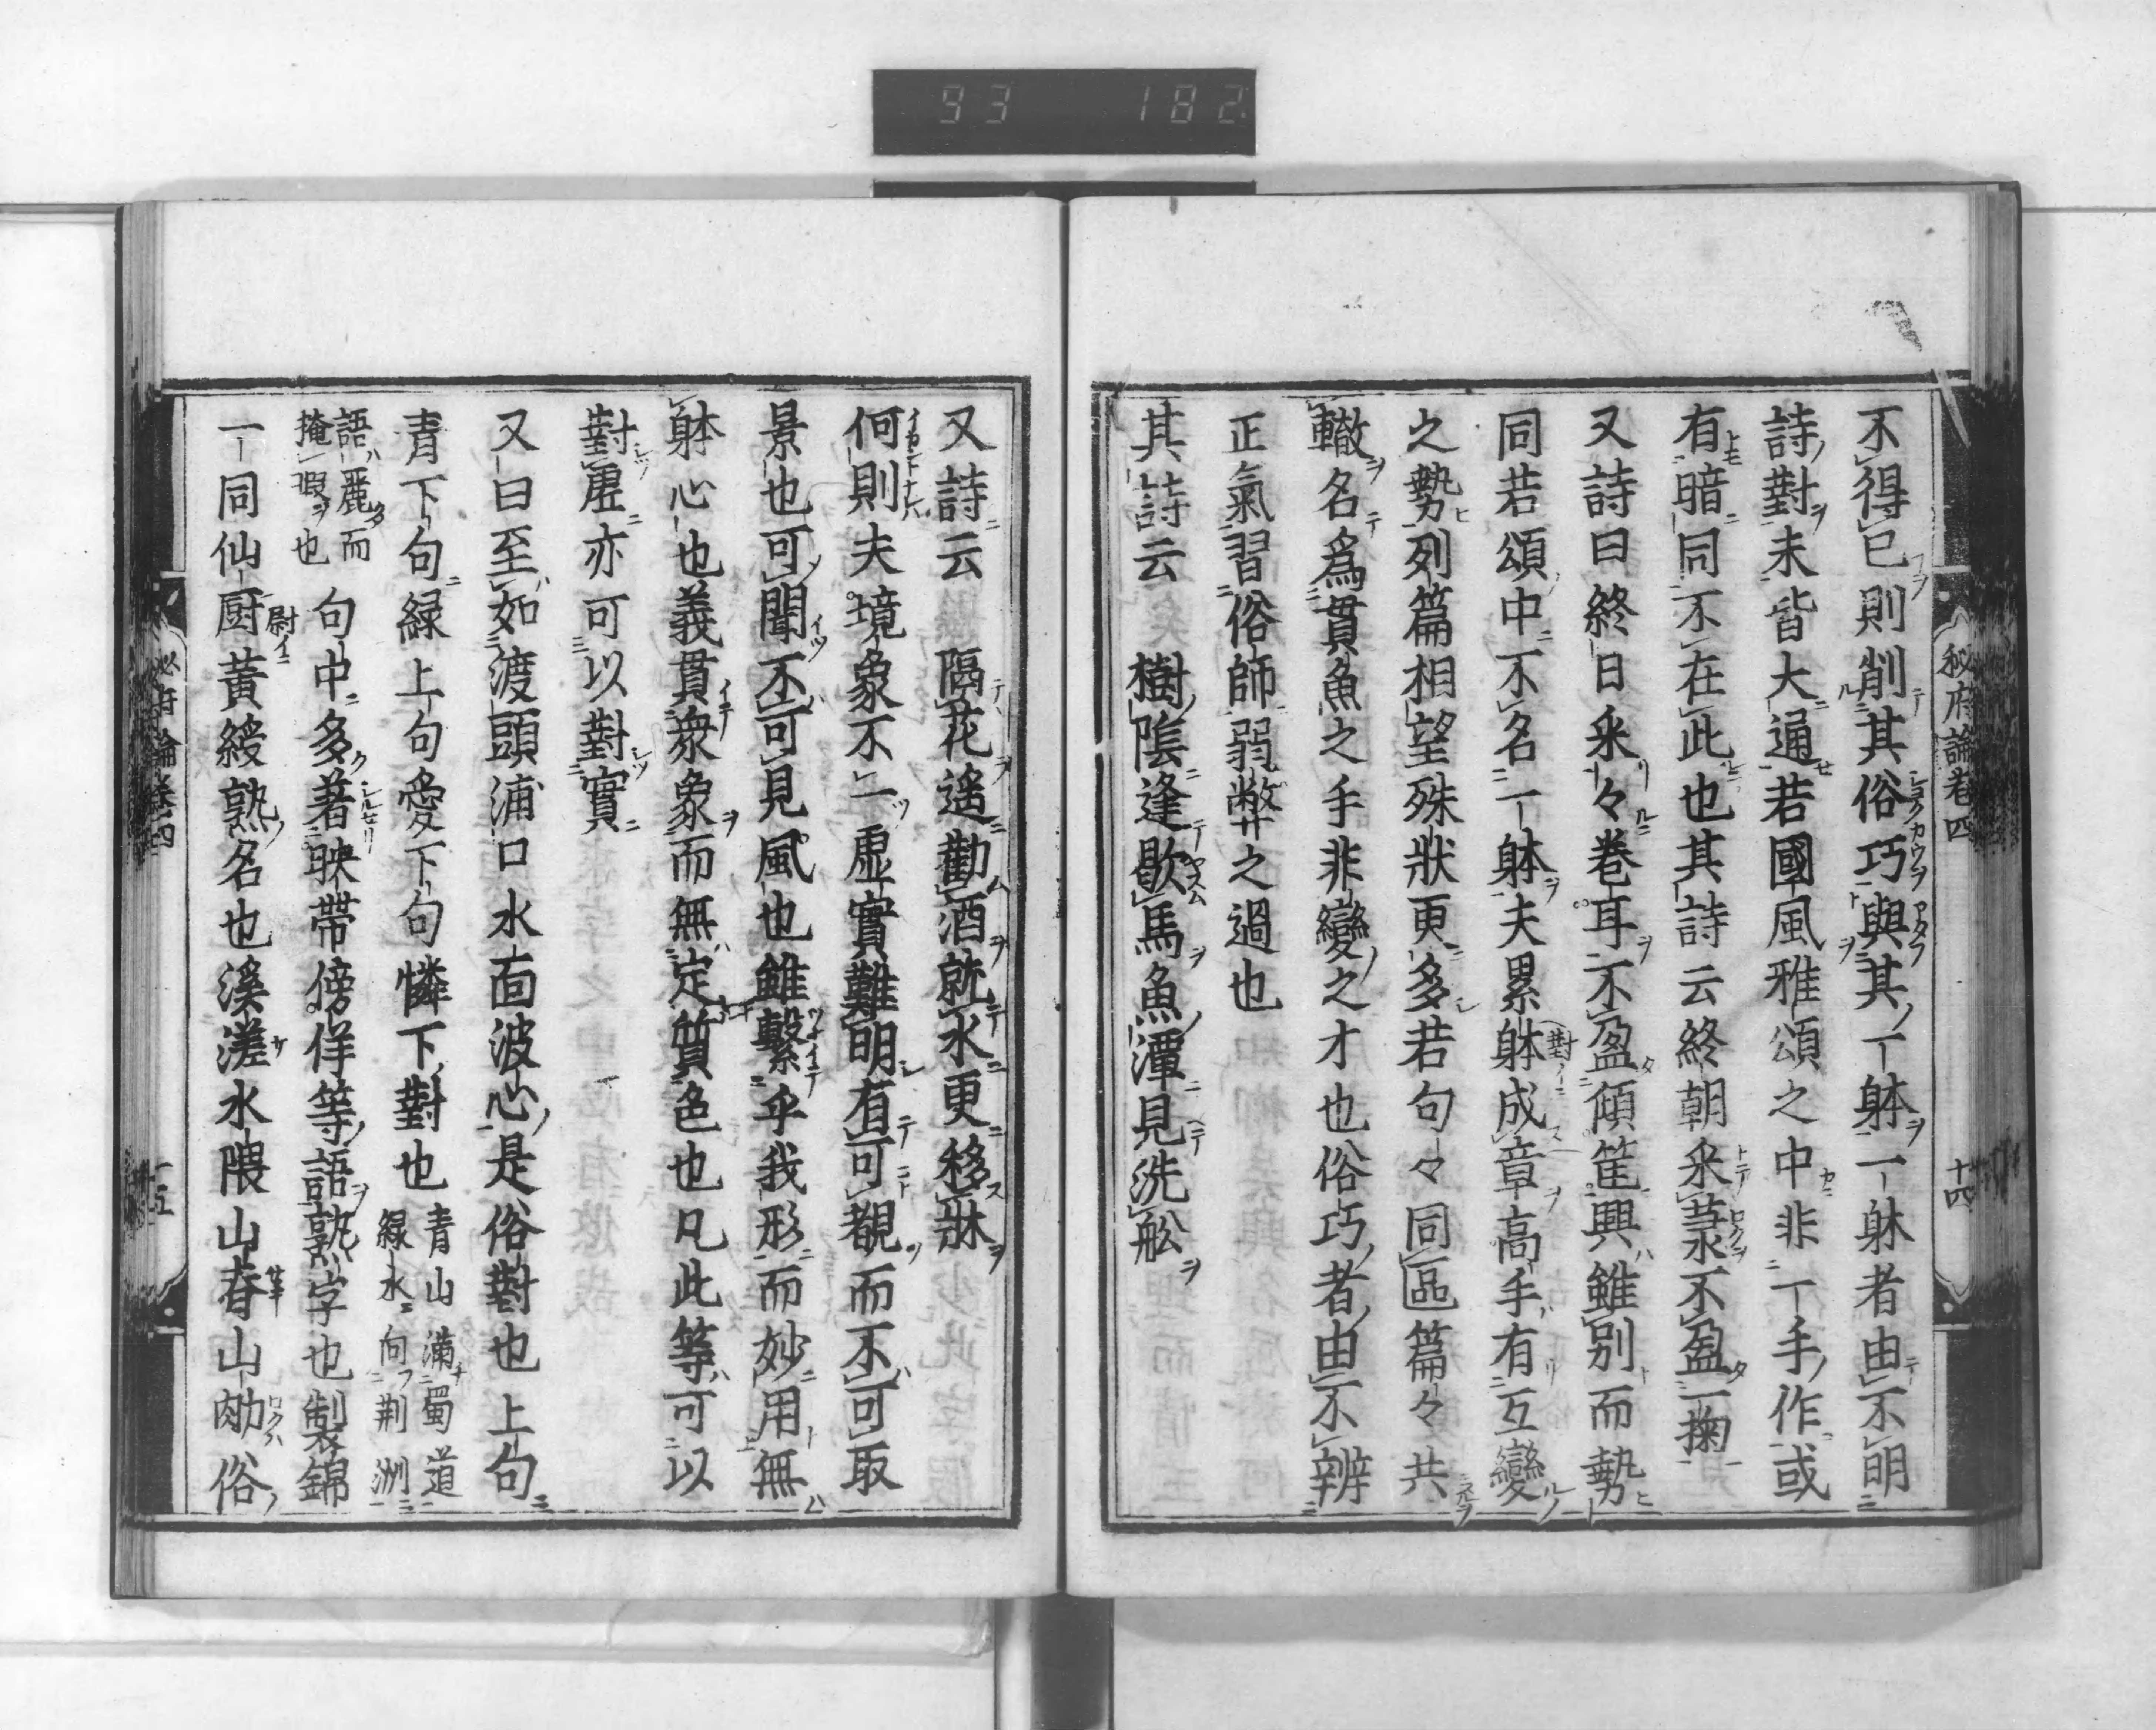 93 182
秘府論卷四 十四
不得已則削其俗巧與其一躰一躰者由不明
詩對未皆大通若國風雅頌之中非一手作或
有暗同不在此也其詩云終朝采菉不盈一掬
又詩曰終日采々卷耳不盈傾筐興雖別而勢
同若頌中不名一躰夫累躰成章高手有互變
之勢列篇相望殊狀更多若句々同區篇々共
轍名爲貫魚之手非變之才也俗巧者由不辨
正氣習俗師弱弊之過也
其詩云 樹陰逢歇馬魚潭見洗舩
又詩云 隔花遙勸酒就水更移牀
何則夫境象不一虛實難明有可覩而不可取
景也可聞不可見風也雖繫乎我形而妙用無
躰心也義貫衆象而無定質色也凡此等可以
對虛亦可以對實
又曰至如渡頭浦口水面波心是俗對也上句
青下句綠上句愛下句憐下對也 青山滿蜀道
綠水向荆洲
語麗而
掩瑕也 句中多著映帶傍佯等語熟字也製錦
一同仙尉黃綬熟名也溪溠水隈山脊山肋俗